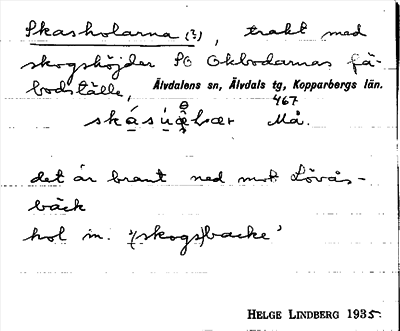 Skasholarna (?), trakt med
skogshöjder SO Okbodarnas fä-
bodställe, Älvdalens sn, Älvdals tg, Kopparbergs län.
467
Må.
det är brant ned mot Lövås-
bäck
hol m. '(skogs)backe'
HELGE LINDBERG 1935.